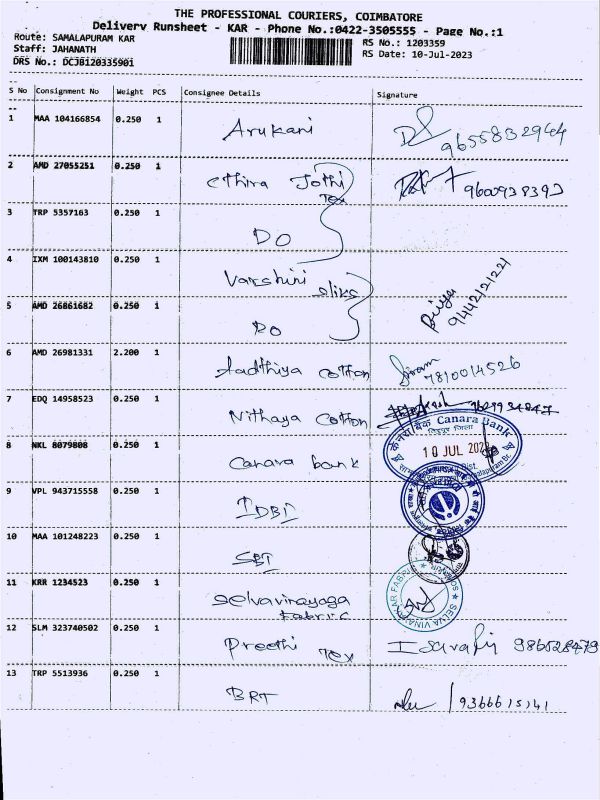 THE PROFESSIONAL COURIERS, COIMBATORE
Delivery Runsheet - KAR - Phone No.:0422-3505555 - Page No.:1
Route: SAMALAPURAM KAR
Staff: JAHANATH
DRS No.: DCJB120335901
RS No.: 1203359
RS Date: 10-Jul-2023
S No Consignment No Weight PCS Consignee Details Signature
1 MAA 104166854 0.250 1 Arukani 9655832944
2 AMD 27055251 0.250 1 Ethira Jothi Tex 9600938393
3 TRP 5357163 0.250 1 DO
4 IXM 100143810 0.250 1 Varshini
Priya 9442121221
5 AMD 26861682 0.250 1 DO
6 AMD 26981331 2.200 1 Aadthiya Cotton 7810014526
7 EDQ 14958523 0.250 1 Nithaya Cotton
Canara Bank
10 JUL 2023
8 NKL 8079808 0.250 1 Canara bank
9 VPL 943715558 0.250 1 IDBI
10 MAA 101248223 0.250 1 SBI
11 KRR 1234523 0.250 1 Selvavinayaga Fabric
12 SLM 323740502 0.250 1 Preethi Tex
13 TRP 5513936 0.250 1 BRT 9366615141